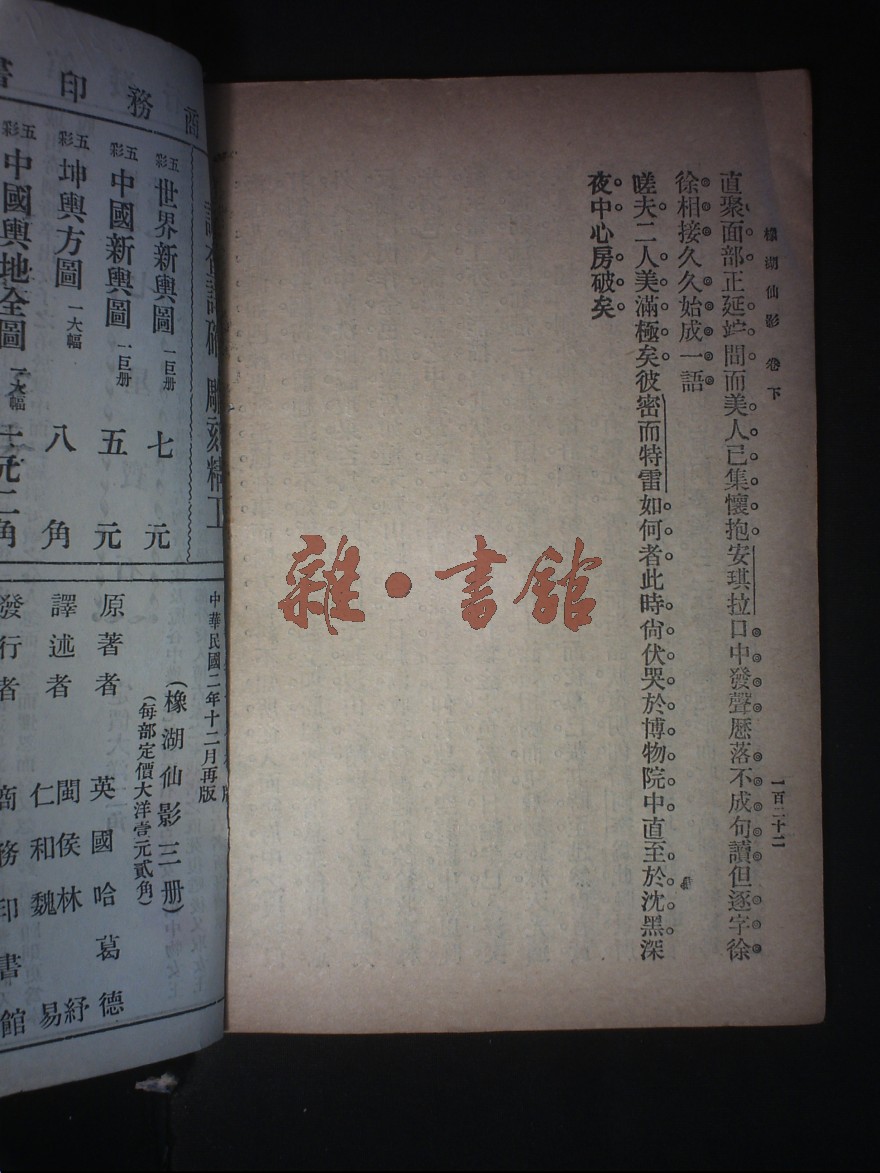 橡湖仙影 卷下
一百二十二
直聚面部正延竚間而美人已集懷抱安琪拉口中發聲歷落不成句讀但逐字徐
徐相接久久始成一語
嗟夫二人美滿極矣彼密而特雷如何者此時尙伏哭於博物院中直至於沈黑深
夜中心房破矣
雜·書館
商務印書
雕刻精工
五彩 世界新輿圖 一巨册 七元
五彩 中國新輿圖 一巨册 五元
五彩 坤輿方圖 一大幅 八角
五彩 中國輿地全圖 一大幅 二角
中華民國二年十二月再版
(橡湖仙影三册)
(每部定價大洋壹元貳角)
原著者 英國哈葛德
譯述者 閩侯林紓
仁和魏易
發行者 商務印書館